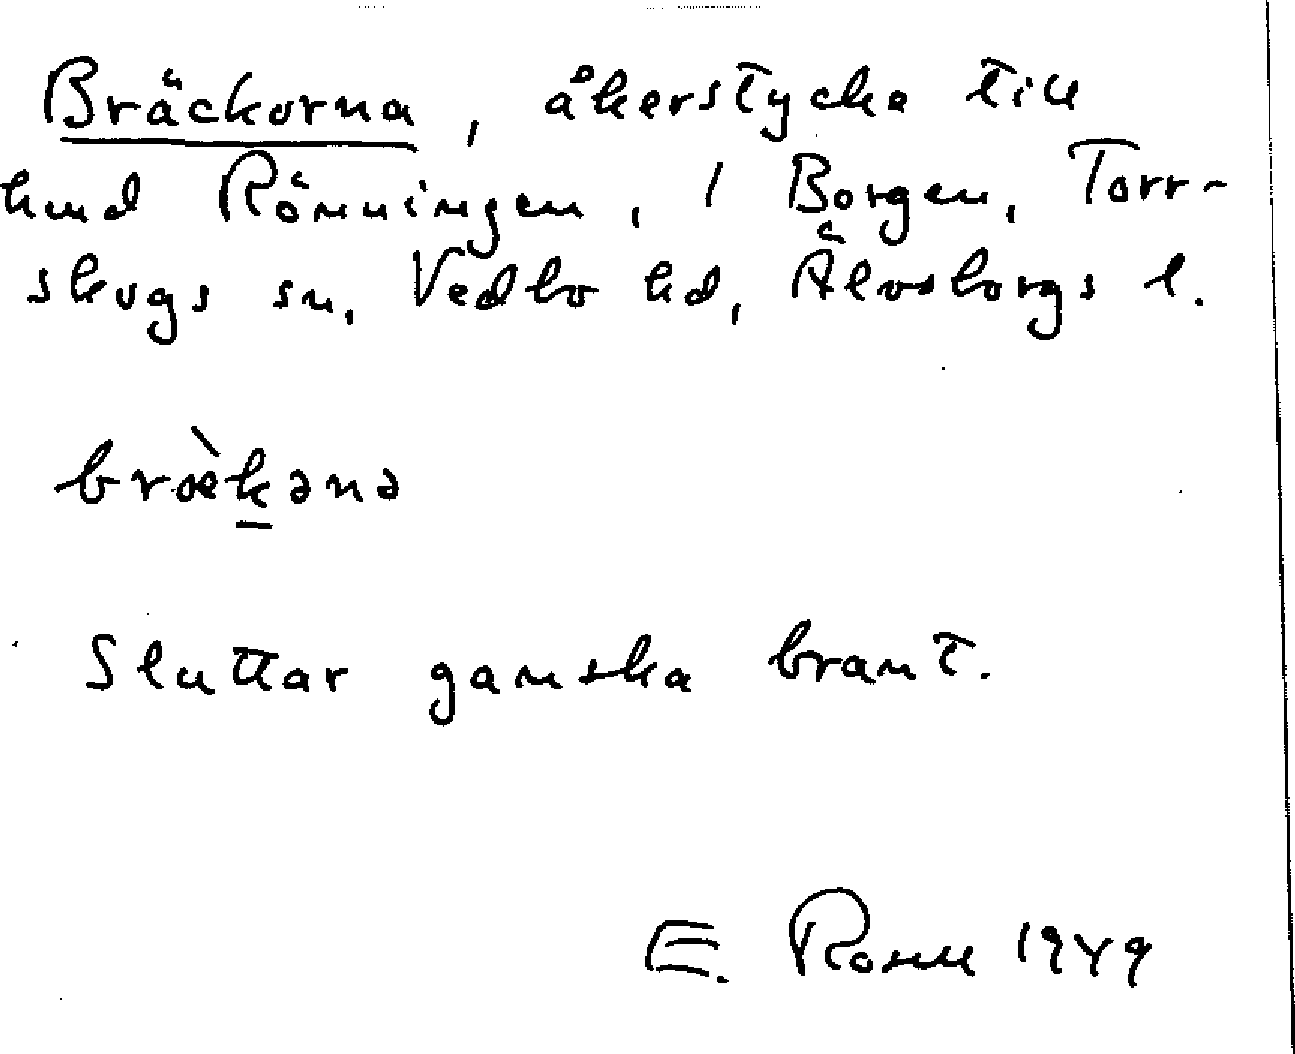 Bräckorna, åkerstycke till
hmd Rönningen, 1 Borgen, Torr-
skogs sn, Vedbo hd, Älvsborgs l.
bræ̀kəna
Sluttar ganska brant.
E. 1949